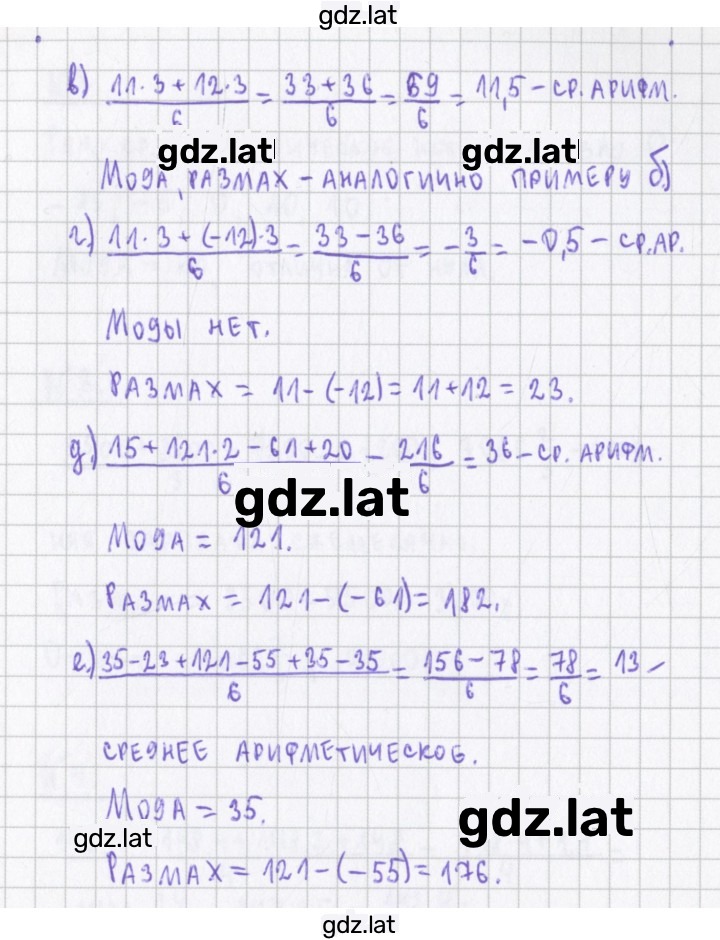 gdz.lat
в) 11·3+12·3/6 = 33+36/6 = 69/6 = 11,5 – СР. АРИФМ.
gdz.lat gdz.lat
МОДА, РАЗМАХ – АНАЛОГИЧНО ПРИМЕРУ б)
г) 11·3+(-12)·3/6 = 33-36/6 = -3/6 = -0,5 – СР.АР.
МОДЫ НЕТ.
РАЗМАХ = 11-(-12) = 11+12 = 23.
д) 15+121·2-61+20/6 = 216/6 = 36 – СР. АРИФМ.
gdz.lat
МОДА = 121.
РАЗМАХ = 121-(-61) = 182.
е) 35-23+121-55+35-35/6 = 156-78/6 = 78/6 = 13 –
СРЕДНЕЕ АРИФМЕТИЧЕСКОЕ.
МОДА = 35.
gdz.lat
gdz.lat
РАЗМАХ = 121-(-55) = 176.
gdz.lat